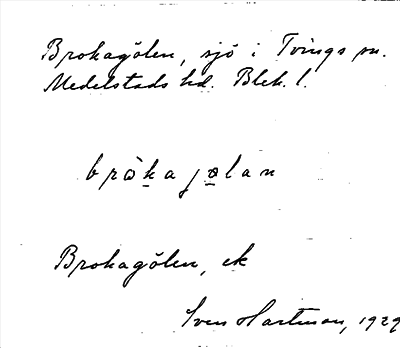 Brokagölen, sjö i Tvings sn.
Medelstads hd. Blek. l.
Brokagölen, ek
Sven Hartman, 1929